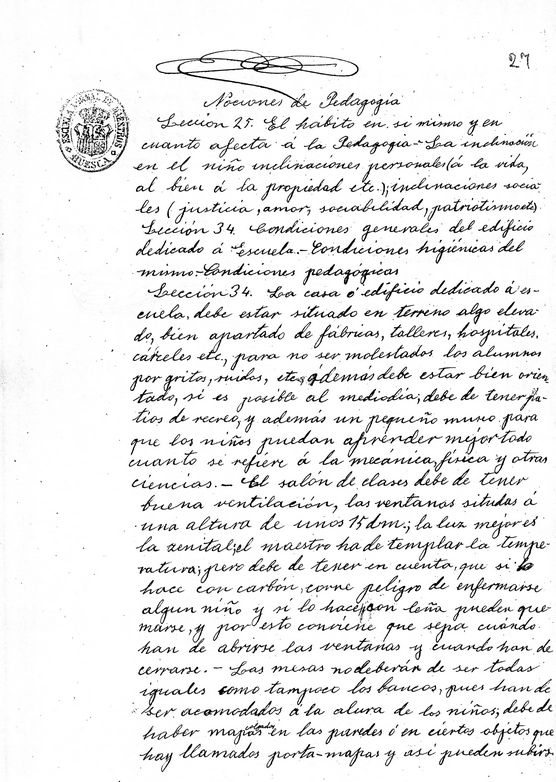 27
Nociones de Pedagogía
ESCUELA NORMAL DE MAESTROS
HUESCA
Lección 25. El hábito en si mismo y en
cuanto afecta á la Pedagogía- La inclinación
en el niño inclinaciones personales (á la vida,
al bien á la propiedad etc.); inclinaciones socia-
les (justicia, amor, sociabilidad, patriotismo etc)
Lección 34. Condiciones generales del edificio
dedicado á Escuela.- Condiciones higiénicas del
mismo.- Condiciones pedagógicas
Lección 34. La casa ó edificio dedicado á es-
cuela, debe estar situado en terreno algo eleva-
do, bien apartado de fábricas, talleres, hospitales,
cárceles etc, para no ser molestados los alumnos
por gritos, ruidos, etc, además debe estar bien orien
tado, si es posible al mediodia, debe de tener pa-
tios de recreo, y además un pequeño museo para
que los niños puedan aprender mejor todo
cuanto se refiere á la mecánica, física y otras
ciencias. - El salón de clases debe de tener
buena ventilación, las ventanas situdas á
una altura de unos 15 dm.; la luz mejor es
la zenital; el maestro ha de templar la tempe-
ratura; pero debe de tener en cuenta, que si lo
hace con carbón, corre peligro de enfermarse
algun niño y si lo hace con leña pueden que-
marse, y por esto conviene que sepa cuándo
han de abrirse las ventanas y cuando han de
cerrarse. - Las mesas no deberán de ser todas
iguales como tampoco los bancos, pues han de
ser acomodados á la alura de los niños; debe de
haber mapas colgados en las paredes ó en ciertos objetos que
hay llamados porta-mapas y asi pueden subirse